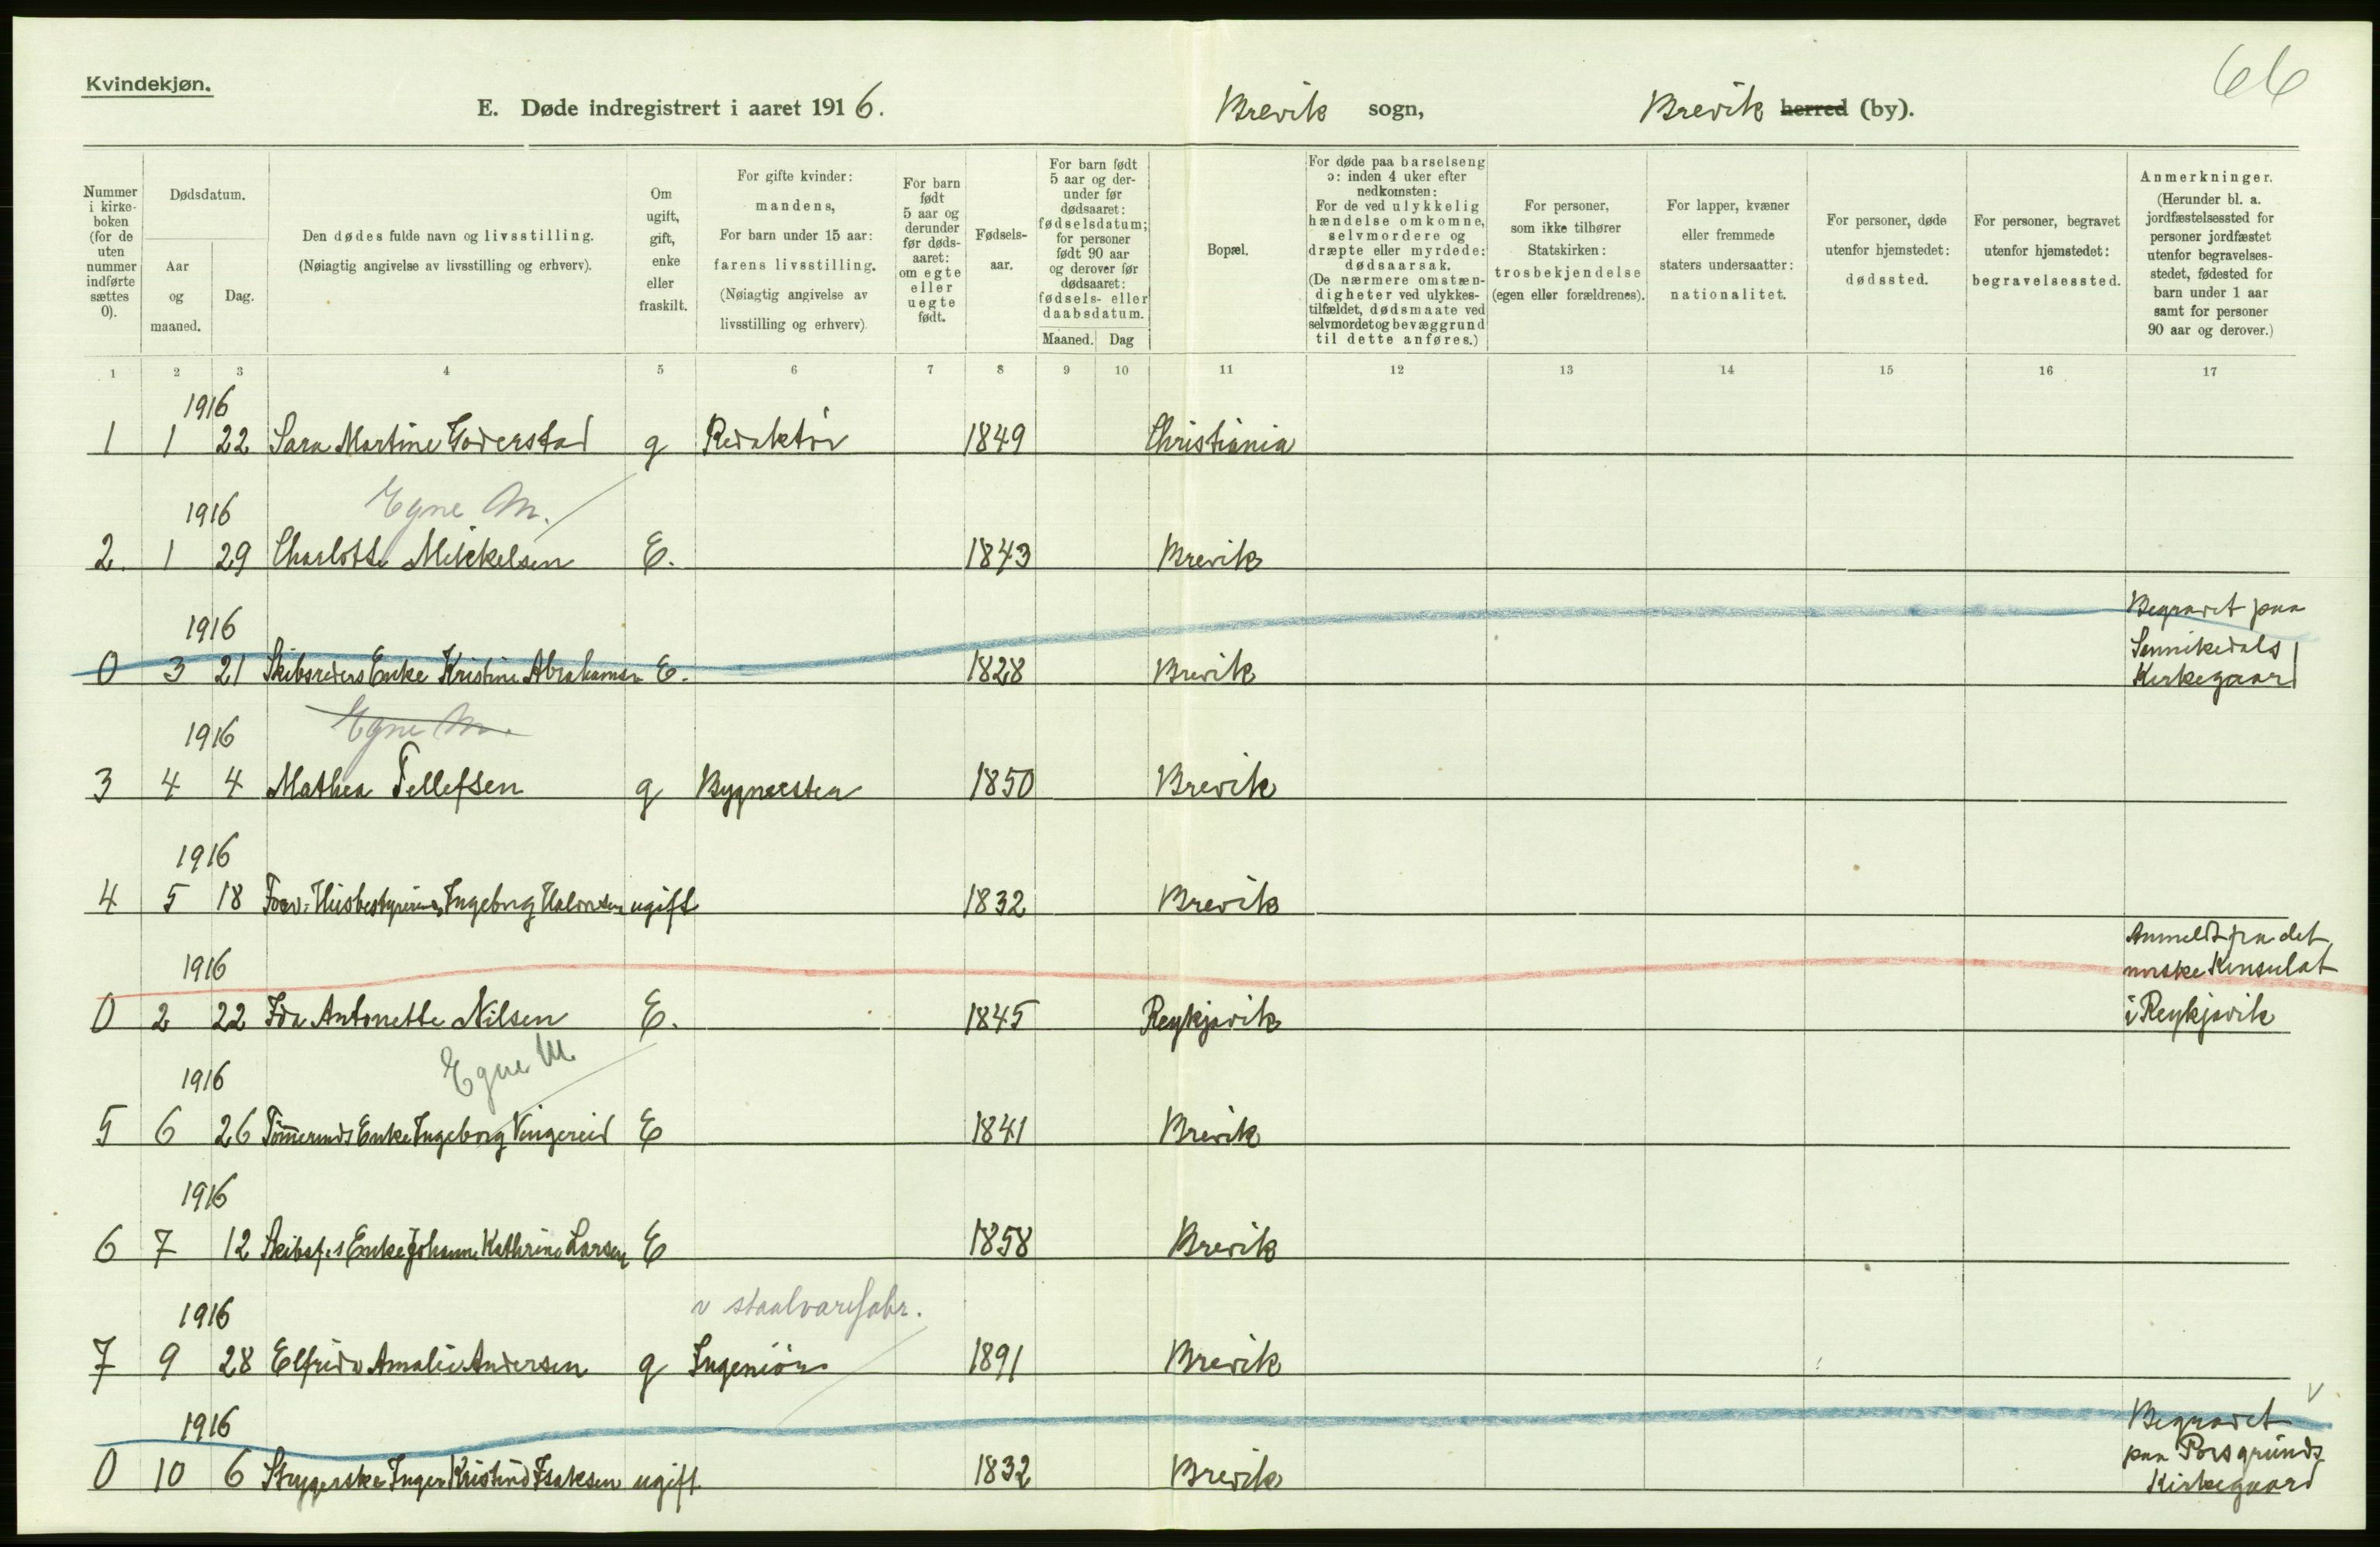 66
Kvindekjøn.
E. Døde indregistrert i aaret 1916. Brevik sogn, Brevik herred (by).
Nummer i kirkeboken (for de uten nummer indførte sættes 0).
Dødsdatum.
Aar og maaned.
Dag.
Den dødes fulde navn og livsstilling.
(Nøiagtig angivelse av livsstilling og erhverv).
Om ugift, gift, enke eller fraskilt.
For gifte kvinder: mandens, For barn under 15 aar: farens livsstilling. (Nøiagtig angivelse av livsstilling og erhverv)
For barn født 5 aar og derunder før dødsaaret: om egte eller uegte født.
Fødselsaar.
For barn født 5 aar og derunder før dødsaaret: fødselsdatum; for personer født 90 aar og derover før dødsaaret: fødsels- eller daabsdatum.
Maaned. Dag
Bopæl.
For døde paa barselseng ɔ: inden 4 uker efter nedkomsten: For de ved ulykkelig hændelse omkomne, selvmordere og dræpte eller myrdede: dødsaarsak. (De nærmere omstændigheter ved ulykkestilfældet, dødsmaate ved selvmordet og bevæggrund til dette anføres.)
For personer, som ikke tilhører Statskirken: trosbekjendelse (egen eller forældrenes).
For lapper, kvæner eller fremmede staters undersaatter: nationalitet.
For personer, døde utenfor hjemstedet: dødssted.
For personer, begravet utenfor hjemstedet: begravelsessted.
Anmerkninger. (Herunder bl. a. jordfæstelsessted for personer jordfæstet utenfor begravelsesstedet, fødested for barn under 1 aar samt for personer 90 aar og derover.)
1 2 3 4 5 6 7 8 9 10 11 12 13 14 15 16 17
1916
1 1 22 Sara Martine Goderstad g Redaktør 1849 Christiania
Egne M.
1916
2. 1 29 Charlotte Mikkelsen E. 1843 Brevik
1916
0 3 21 Skibsreders Enke Kristine Abrahamsen E. 1828 Brevik Begravet paa
Sannikedals
Kirkegaard
Egne M.
1916
3 4 4 Mathea Tellefsen g 1850 Brevik
1916
4 5 18 Ingeborg Halvorsen ugift 1832 Brevik
1916
0 2 22 Ida Antonette Nilsen E. 1845 Reykjavik Anmeldt fra det
norske Konsulat
i Reykjavik
Egne M
1916
5 6 26 Tømmermds Enke Ingeborg Vingereid E 1841 Brevik
1916
6 7 12 Skibsf.s Enke Johanne Kathrine Larsen E 1858 Brevik
v staalvarefabr.
1916
7 9 28 Elfrida Amalie Andersen g Ingeniør 1891 Brevik
1916
0 10 6 Strygerske Inger Kristine Isaksen ugift 1832 Brevik Begravet
paa Porsgrunds
Kirkegaard